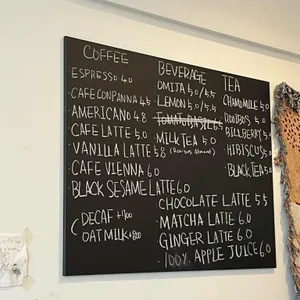 COFFEE
ESPRESSO 4.0
· CAFE CONPANNA 4.5
· AMERICANO 4.8
· CAFE LATTE 5.0
· VANILLA LATTE 5.8
· CAFE VIENNA 6.0
· BLACK SESAME LATTE 6.0
( DECAF +400
OATMILK +800
BEVERAGE
OMIJA 5.0/5.5
· LEMON 5.0/5.5
TOMATO BASIL 6.5
MILK TEA 5.0
TEA
CHAMOMILE 5.0
ROOIBOS 5.0
BILLBERRY 5.0
· HIBISCUS 5.0
· BLACK TEA 5.0
CHOCOLATE LATTE 5.5
· MATCHA LATTE 6.0
GINGER LATTE 6.0
· 100% APPLE JUICE 6.0